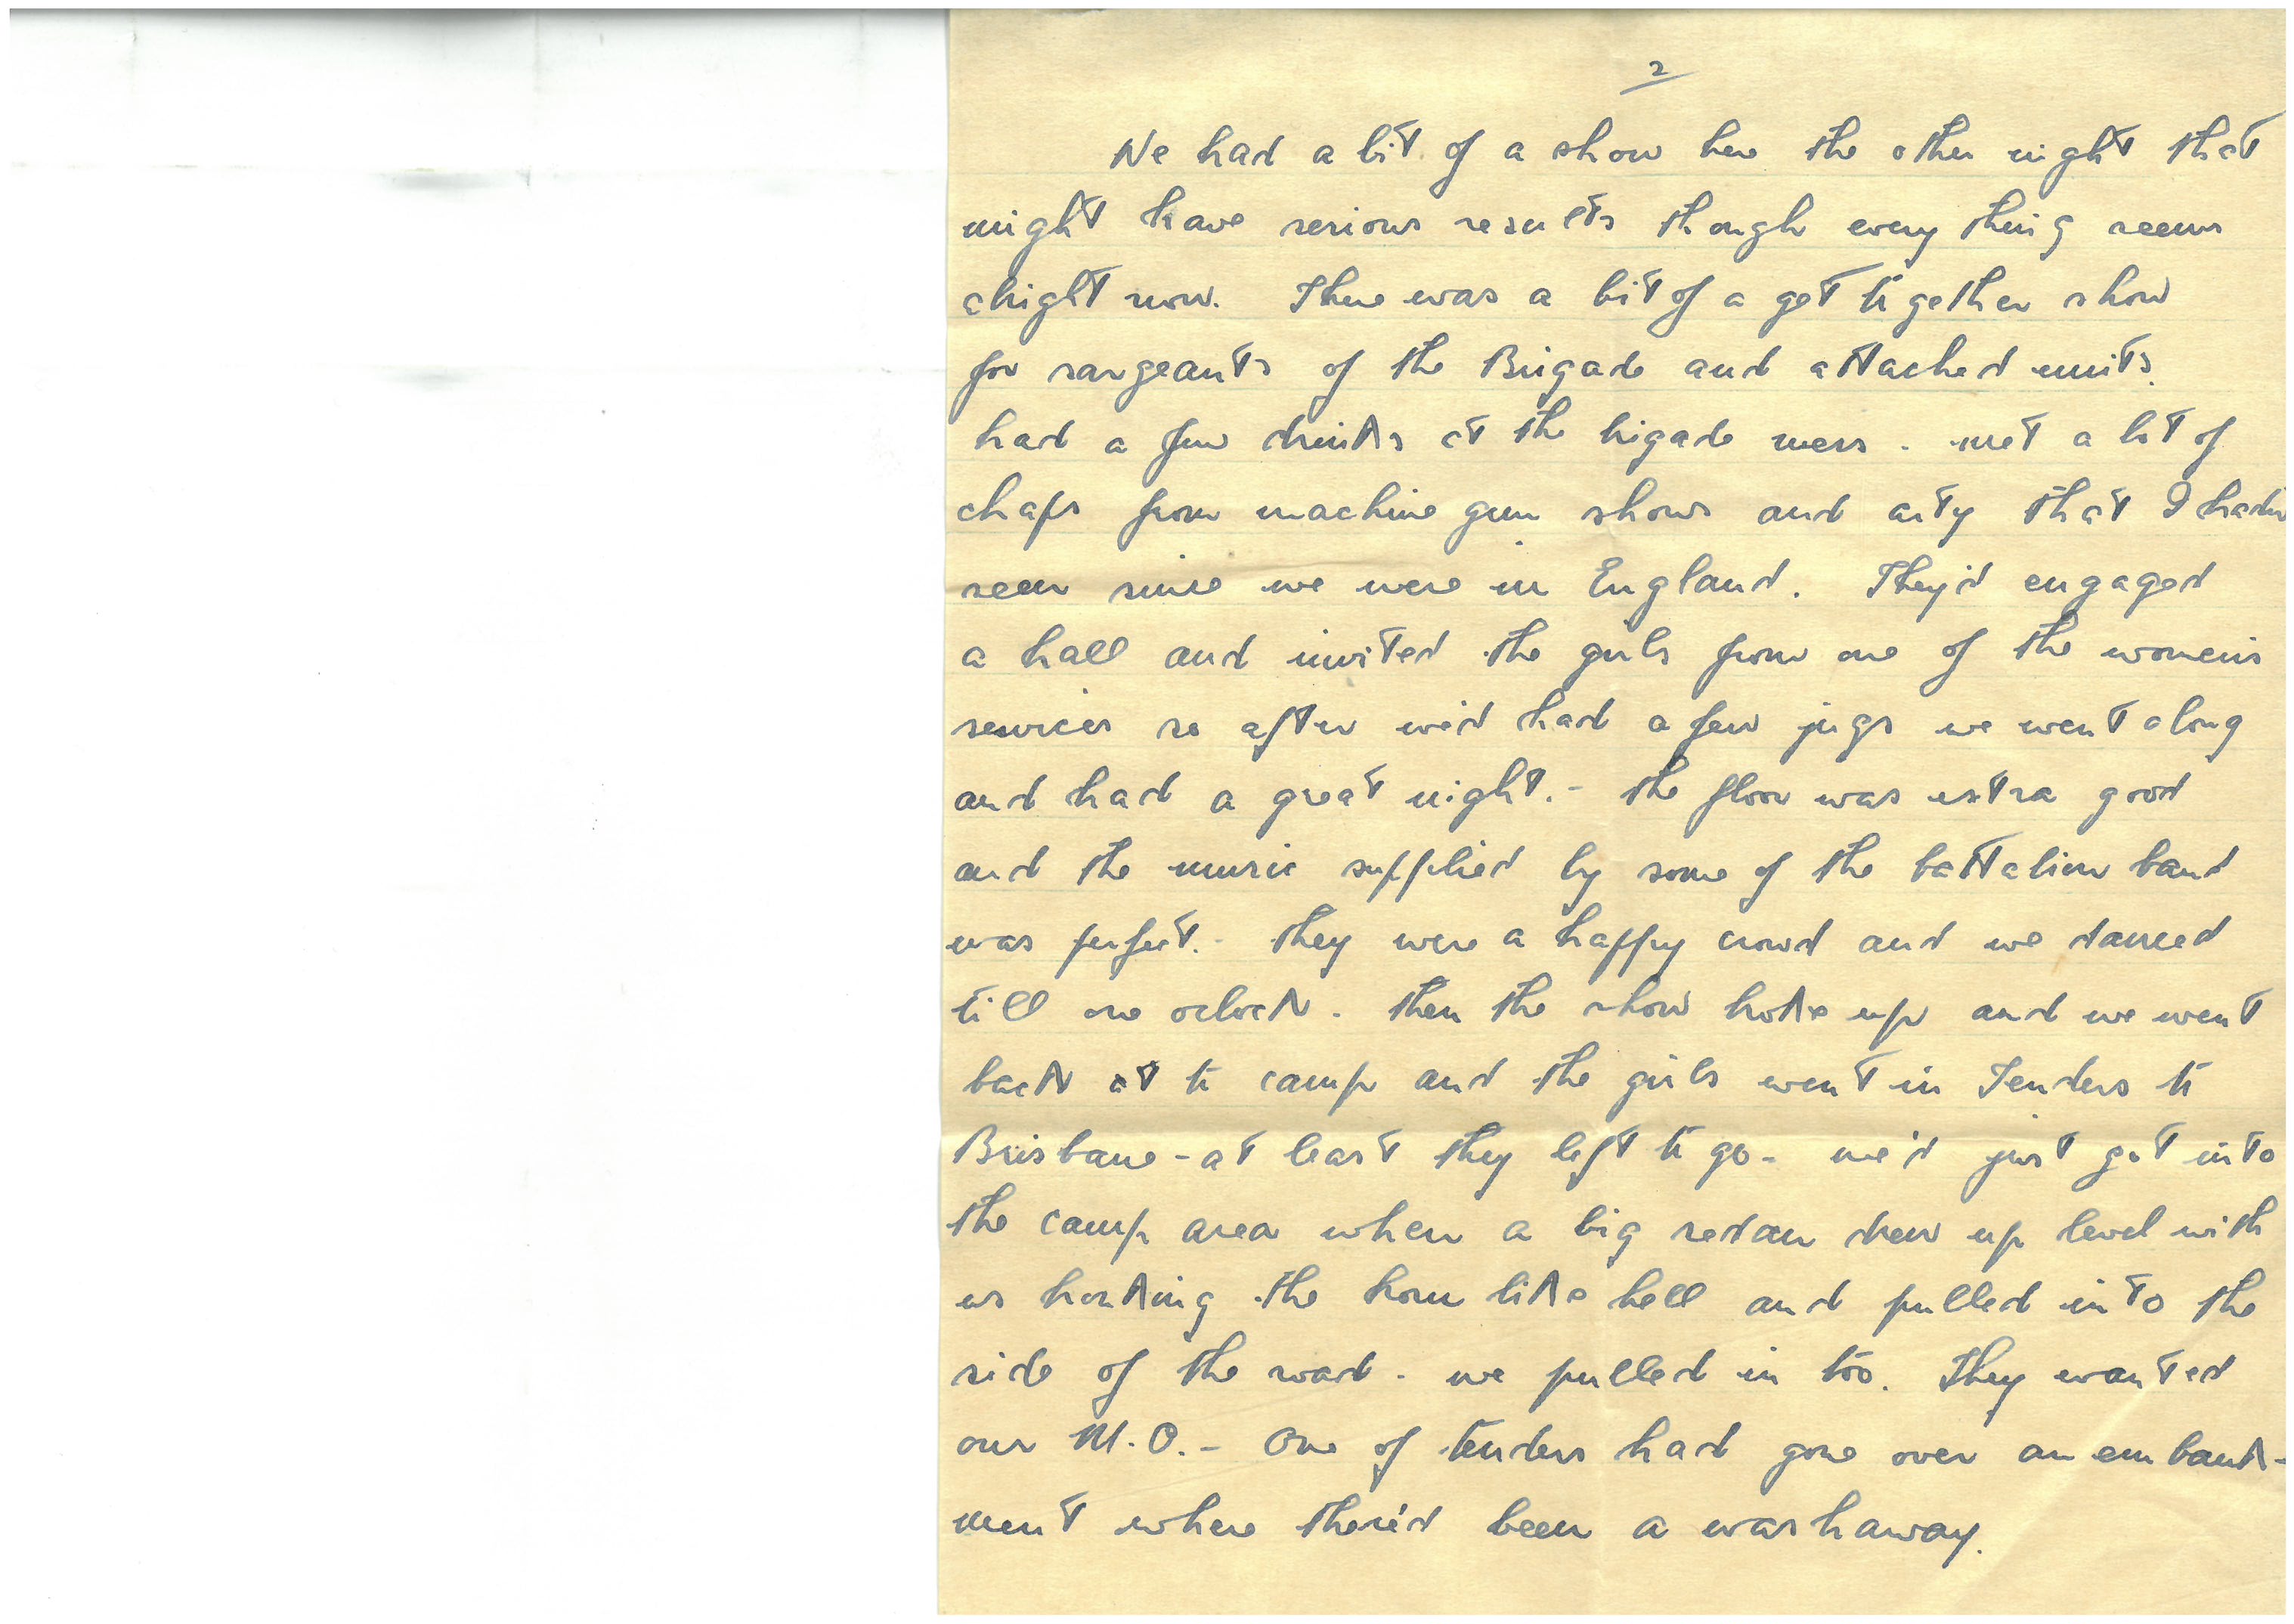 2
We had a bit of a show here the other night that
might have serious results though every thing seems
alright now. There was a bit of a get together show
for sargeants of the Brigade and attached units.
had a few drinks at the brigade mess. met a lot of
chaps from machine gun shows and arty that I hadn
seen since we were in England. They'd engaged
a hall and invited the girls from one of the women's
services so after we'd had a few jugs we went along
and had a great night. - the floor was extra good
and the music supplied by some of the battalion band
was perfect. - they were a happy crowd and we danced
till one oclock. then the show broke up and we went
back at to camp and the girls went in Tenders to
Brisbane - at least they left to go - we'd just got into
the camp area when a big sedan drew up level with
us honking the horn like hell and pulled into the
side of the road - we pulled in too. They wanted
our M.O. - One of tenders had gone over an embank-
ment where there'd been a washaway.